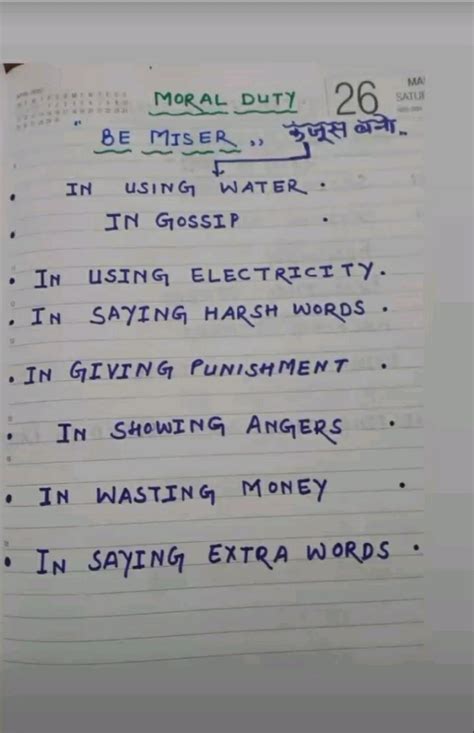 MORAL DUTY
26
MA
SATU
" BE MISER ,, कंजूस बनो..
• IN USING WATER •
• IN GOSSIP •
• IN USING ELECTRICITY •
• IN SAYING HARSH WORDS •
• IN GIVING PUNISHMENT •
• IN SHOWING ANGERS •
• IN WASTING MONEY •
• IN SAYING EXTRA WORDS •